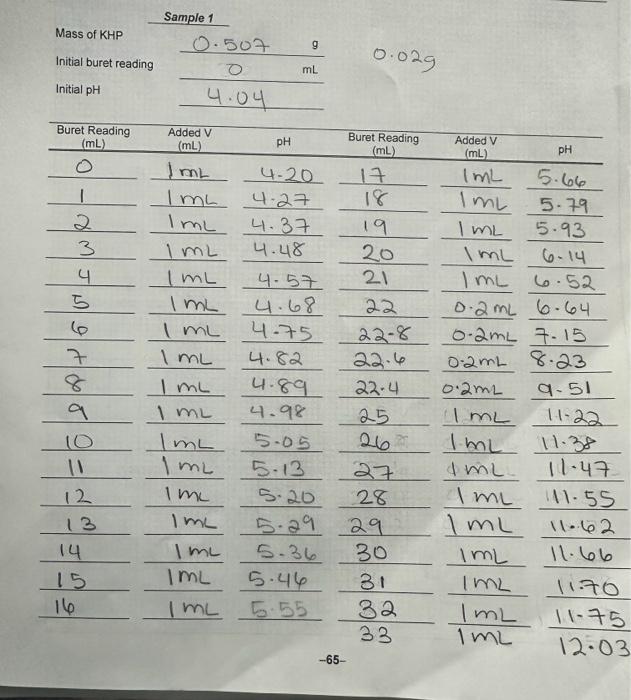 Sample 1
Mass of KHP 0.507 g 0.02g
Initial buret reading 0 mL
Initial pH 4.04
Buret Reading (mL) Added V (mL) pH Buret Reading (mL) Added V (mL) pH
0 1mL 4.20 17 1mL 5.66
1 1mL 4.27 18 1mL 5.79
2 1mL 4.37 19 1mL 5.93
3 1mL 4.48 20 1mL 6.14
4 1mL 4.57 21 1mL 6.52
5 1mL 4.68 22 0.2mL 6.64
6 1mL 4.75 22.8 0.2mL 7.15
7 1mL 4.82 22.6 0.2mL 8.23
8 1mL 4.89 22.4 0.2mL 9.51
9 1mL 4.98 25 1mL 11.22
10 1mL 5.05 26 1mL 11.38
11 1mL 5.13 27 1mL 11.47
12 1mL 5.20 28 1mL 11.55
13 1mL 5.29 29 1mL 11.62
14 1mL 5.36 30 1mL 11.66
15 1mL 5.46 31 1mL 11.70
16 1mL 5.55 32 1mL 11.75
33 1mL 12.03
-65-